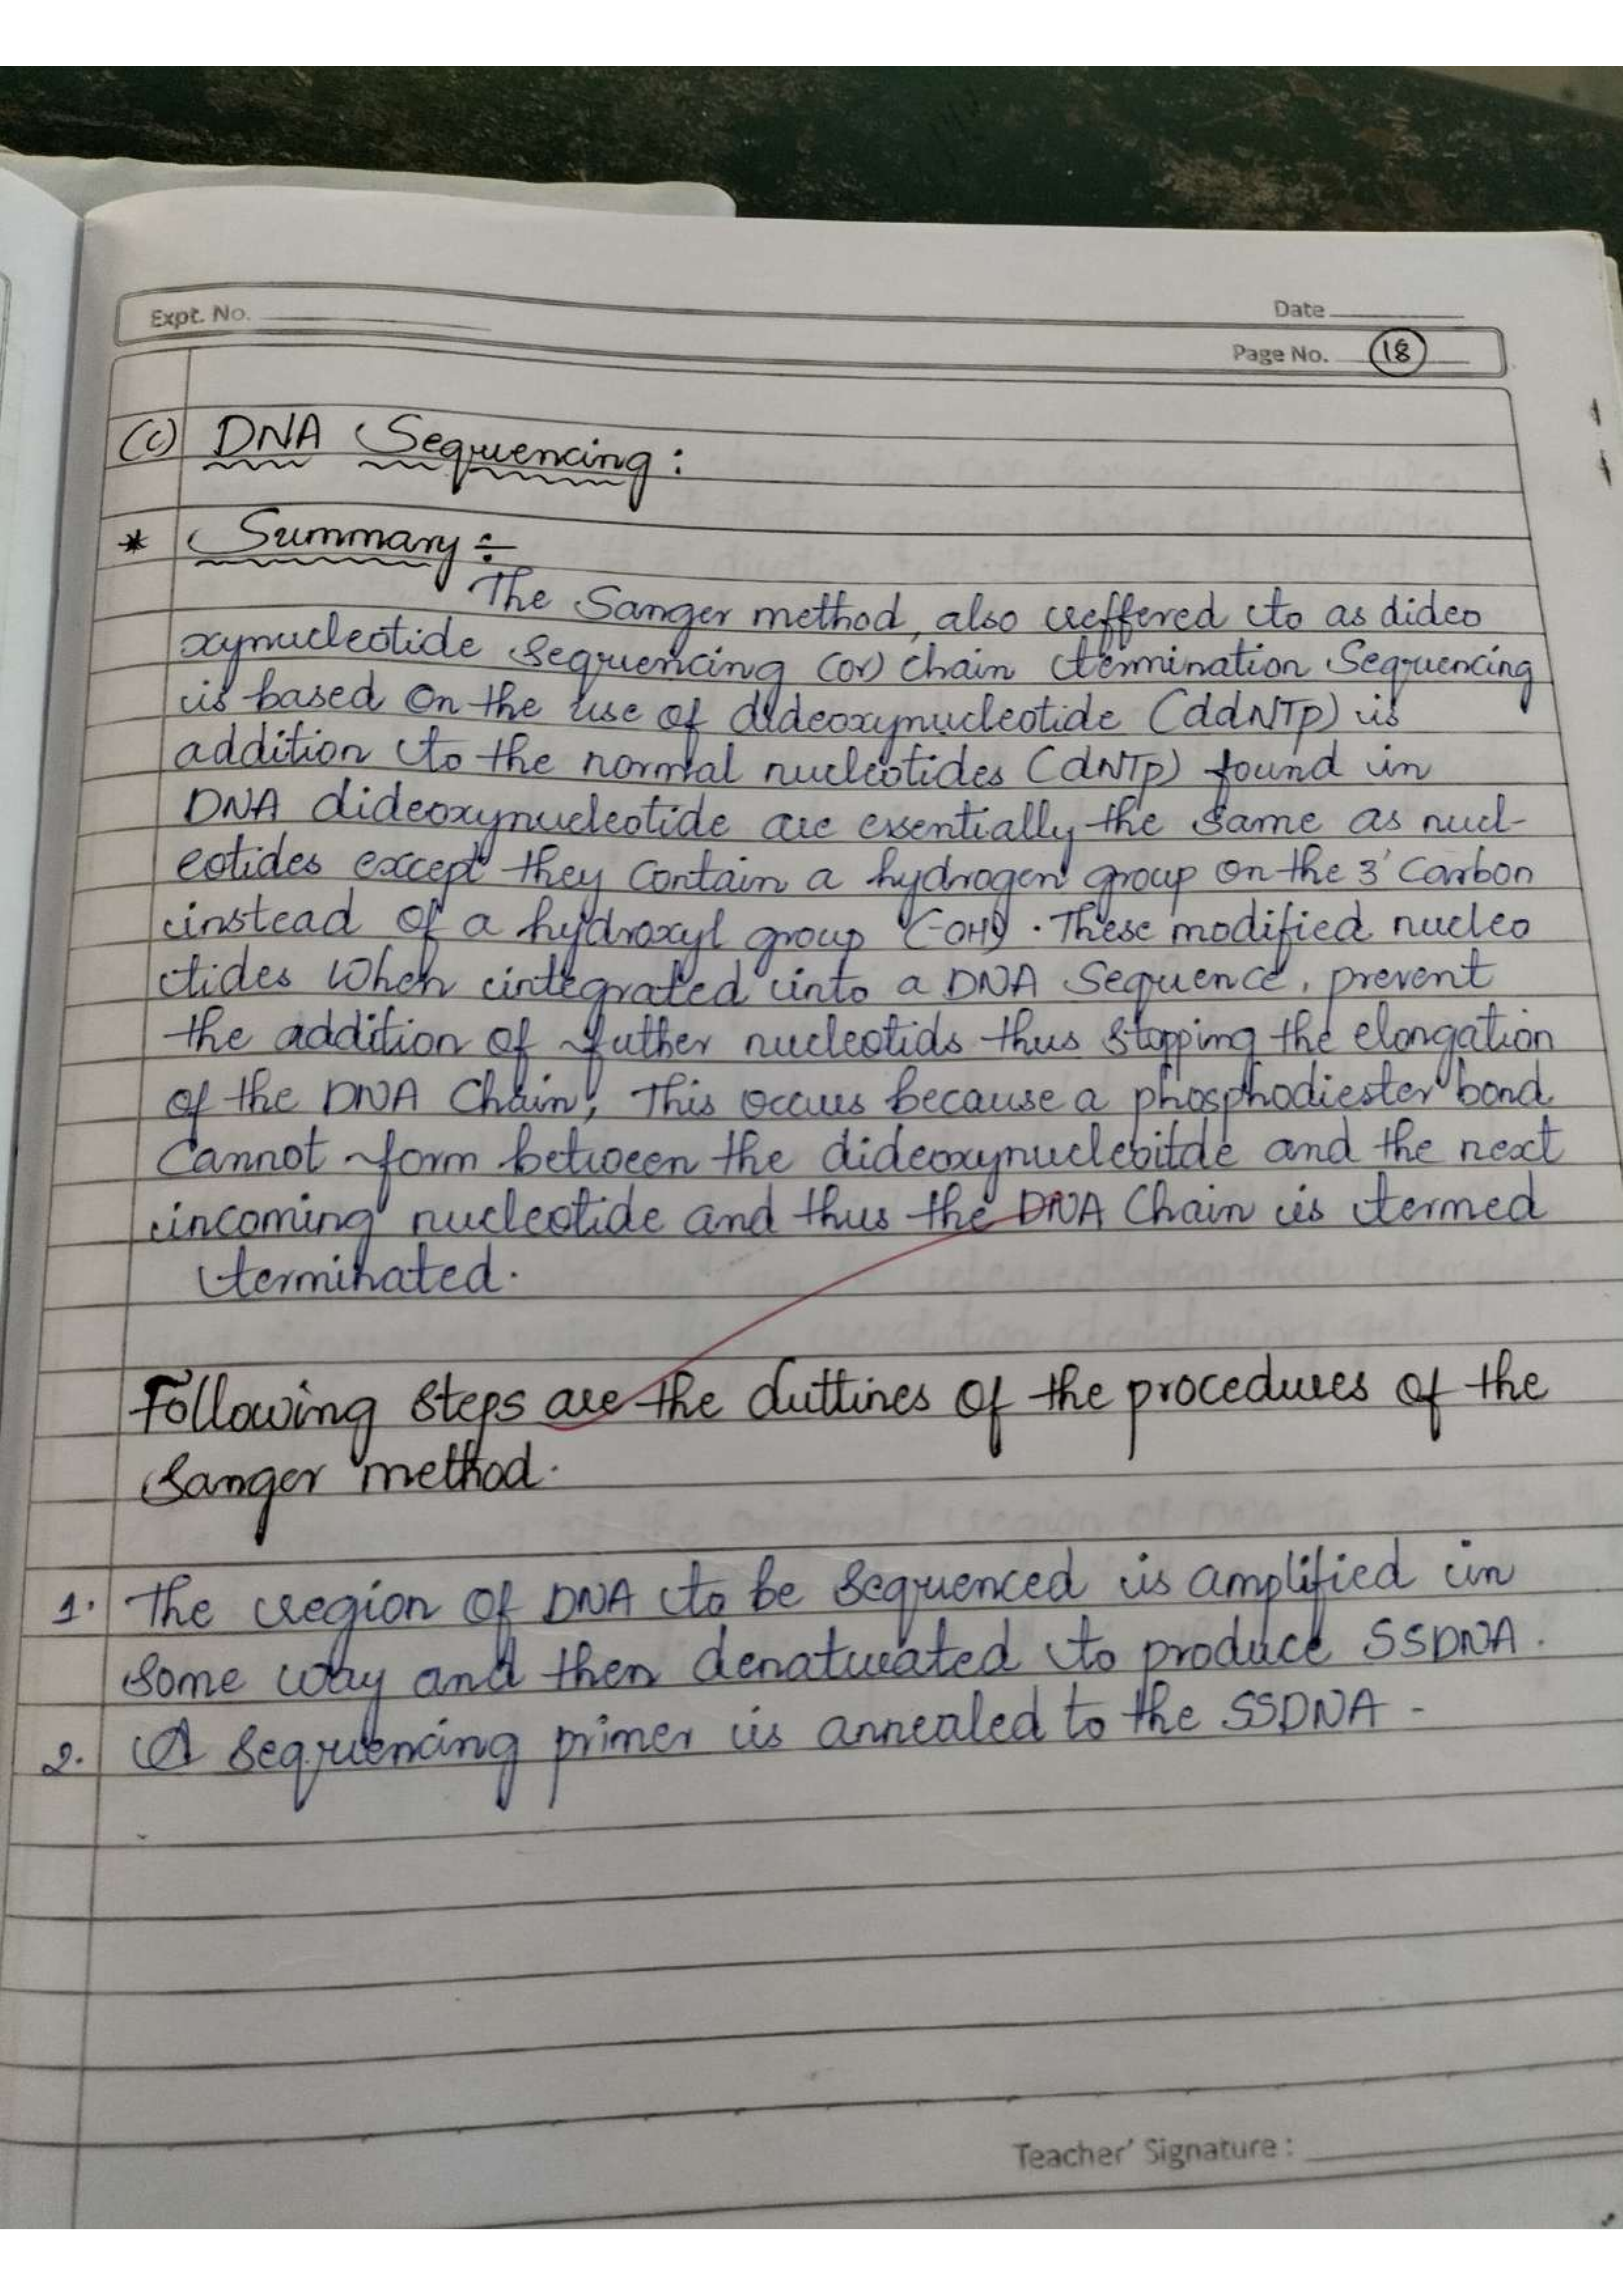 Expt. No.
Date
Page No. 18
(c) DNA Sequencing:
* Summary ÷
The Sanger method, also reffered to as dideo
xynucleotide sequencing (or) chain termination Sequencing
is based on the use of dideoxynucleotide (ddNTp) is
addition to the normal nucleotides (dNTp) found in
DNA dideoxynucleotide are essentially the same as nucl-
eotides except they contain a hydrogen group on the 3' Carbon
instead of a hydroxyl group (-OH). These modified nucleo
tides when integrated into a DNA Sequence, prevent
the addition of futher nucleotids thus stopping the elongation
of the DNA Chain, This occurs because a phosphodiester bond
Cannot form between the dideoxynucleoitde and the next
incoming nucleotide and thus the DNA Chain is termed
terminated.
Following steps are the outtines of the procedures of the
Sanger method.
1. The region of DNA to be sequenced is amplified in
some way and then denaturated to produce SSDNA.
2. A sequencing primer is annealed to the SSDNA -
Teacher' Signature :